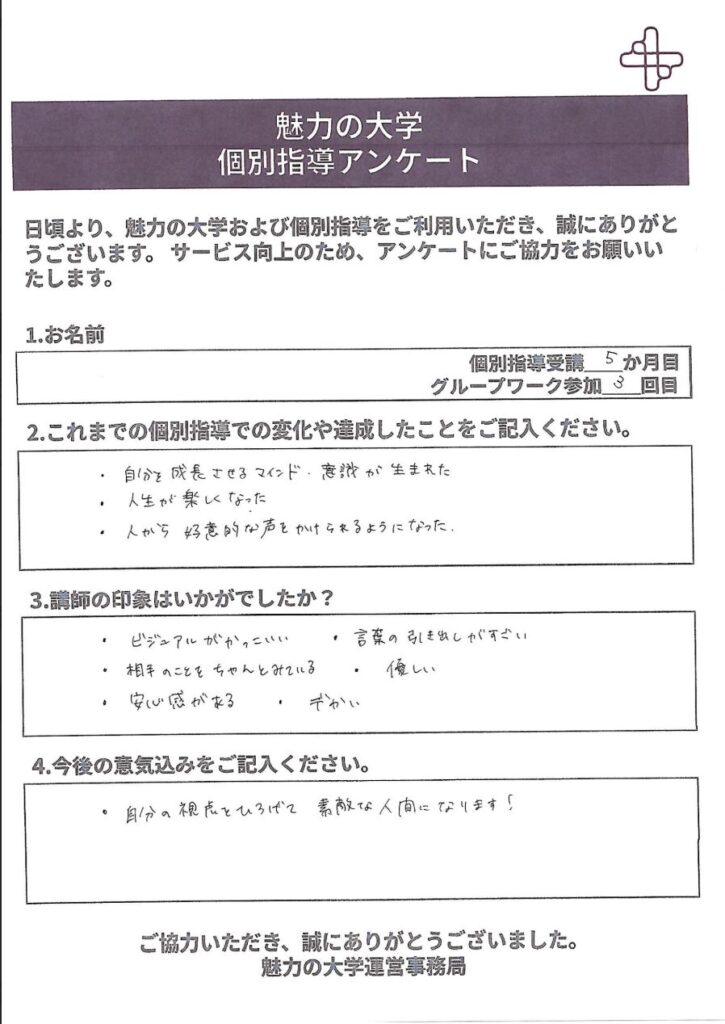 魅力の大学
個別指導アンケート
日頃より、魅力の大学および個別指導をご利用いただき、誠にありがと
うございます。 サービス向上のため、アンケートにご協力をお願いい
たします。
1.お名前
個別指導受講 5 か月目
グループワーク参加 3 回目
2.これまでの個別指導での変化や達成したことをご記入ください。
・ 自分を成長させるマインド・意識が生まれた
・ 人生が楽しくなった
・ 人から 好意的な声をかけられるようになった.
3.講師の印象はいかがでしたか？
・ ビジュアルがかっこいい ・ 言葉の引き出しがすごい
・ 相手のことをちゃんとみている ・ 優しい
・ 安心感がある ・ デかい
4.今後の意気込みをご記入ください。
・ 自分の視点をひろげて 素敵な人間になります!
ご協力いただき、誠にありがとうございました。
魅力の大学運営事務局